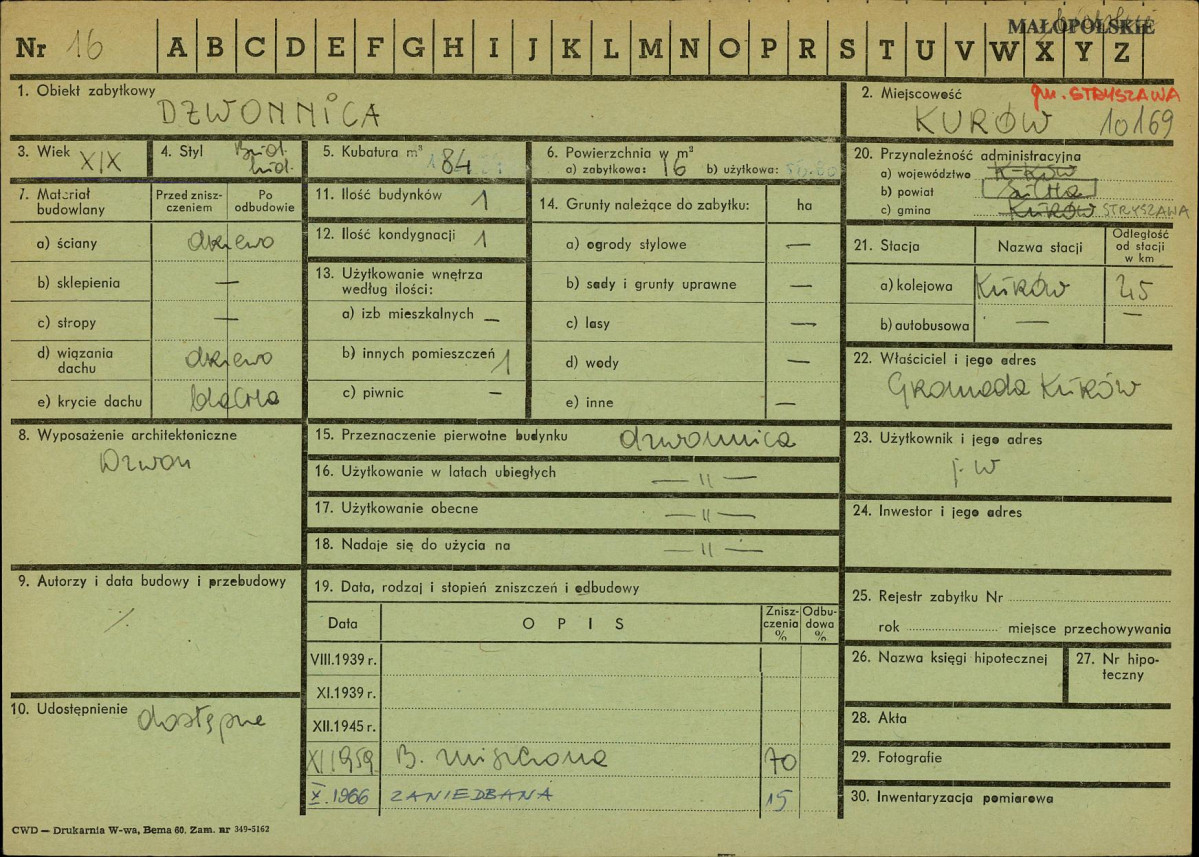 MAŁOPOLSKIE
Nr 16 A B C D E F G H I J K L M N O P R S T U V W X Y Z
1. Obiekt zabytkowy
DZWONNICA
2. Miejscowość gm. STRYSZAWA
KURÓW 10169
3. Wiek XIX
4. Styl
5. Kubatura m³ 184
6. Powierzchnia w m²
a) zabytkowa: 16 b) użytkowa:
7. Materiał budowlany
Przed zniszczeniem
Po odbudowie
a) ściany drzewo
b) sklepienia —
c) stropy —
d) wiązania dachu drzewo
e) krycie dachu blacha
8. Wyposażenie architektoniczne
Dzwon
9. Autorzy i data budowy i przebudowy
%
10. Udostępnienie dostępne
11. Ilość budynków 1
12. Ilość kondygnacji 1
13. Użytkowanie wnętrza
według ilości:
a) izb mieszkalnych —
b) innych pomieszczeń 1
c) piwnic —
14. Grunty należące do zabytku: ha
a) ogrody stylowe —
b) sady i grunty uprawne —
c) lasy —
d) wody —
e) inne —
15. Przeznaczenie pierwotne budynku dzwonnica
16. Użytkowanie w latach ubiegłych — " —
17. Użytkowanie obecne — " —
18. Nadaje się do użycia na — " —
19. Data, rodzaj i stopień zniszczeń i odbudowy
Data OPIS Zniszczenia % Odbudowa %
VIII.1939 r.
XI.1939 r.
XII.1945 r.
XI 1959 B. zniszczona 70
X.1966 ZANIEDBANA 15
20. Przynależność administracyjna
a) województwo
b) powiat
c) gmina KURÓW STRYSZAWA
21. Stacja Nazwa stacji Odległość od stacji w km
a) kolejowa Kurów
b) autobusowa — —
22. Właściciel i jego adres
Gromada Kurów
23. Użytkownik i jego adres
j. w
24. Inwestor i jego adres
25. Rejestr zabytku Nr
rok miejsce przechowywania
26. Nazwa księgi hipotecznej
27. Nr hipoteczny
28. Akta
29. Fotografie
30. Inwentaryzacja pomiarowa
CWD — Drukarnia W-wa, Bema 60. Zam. nr 349-5162